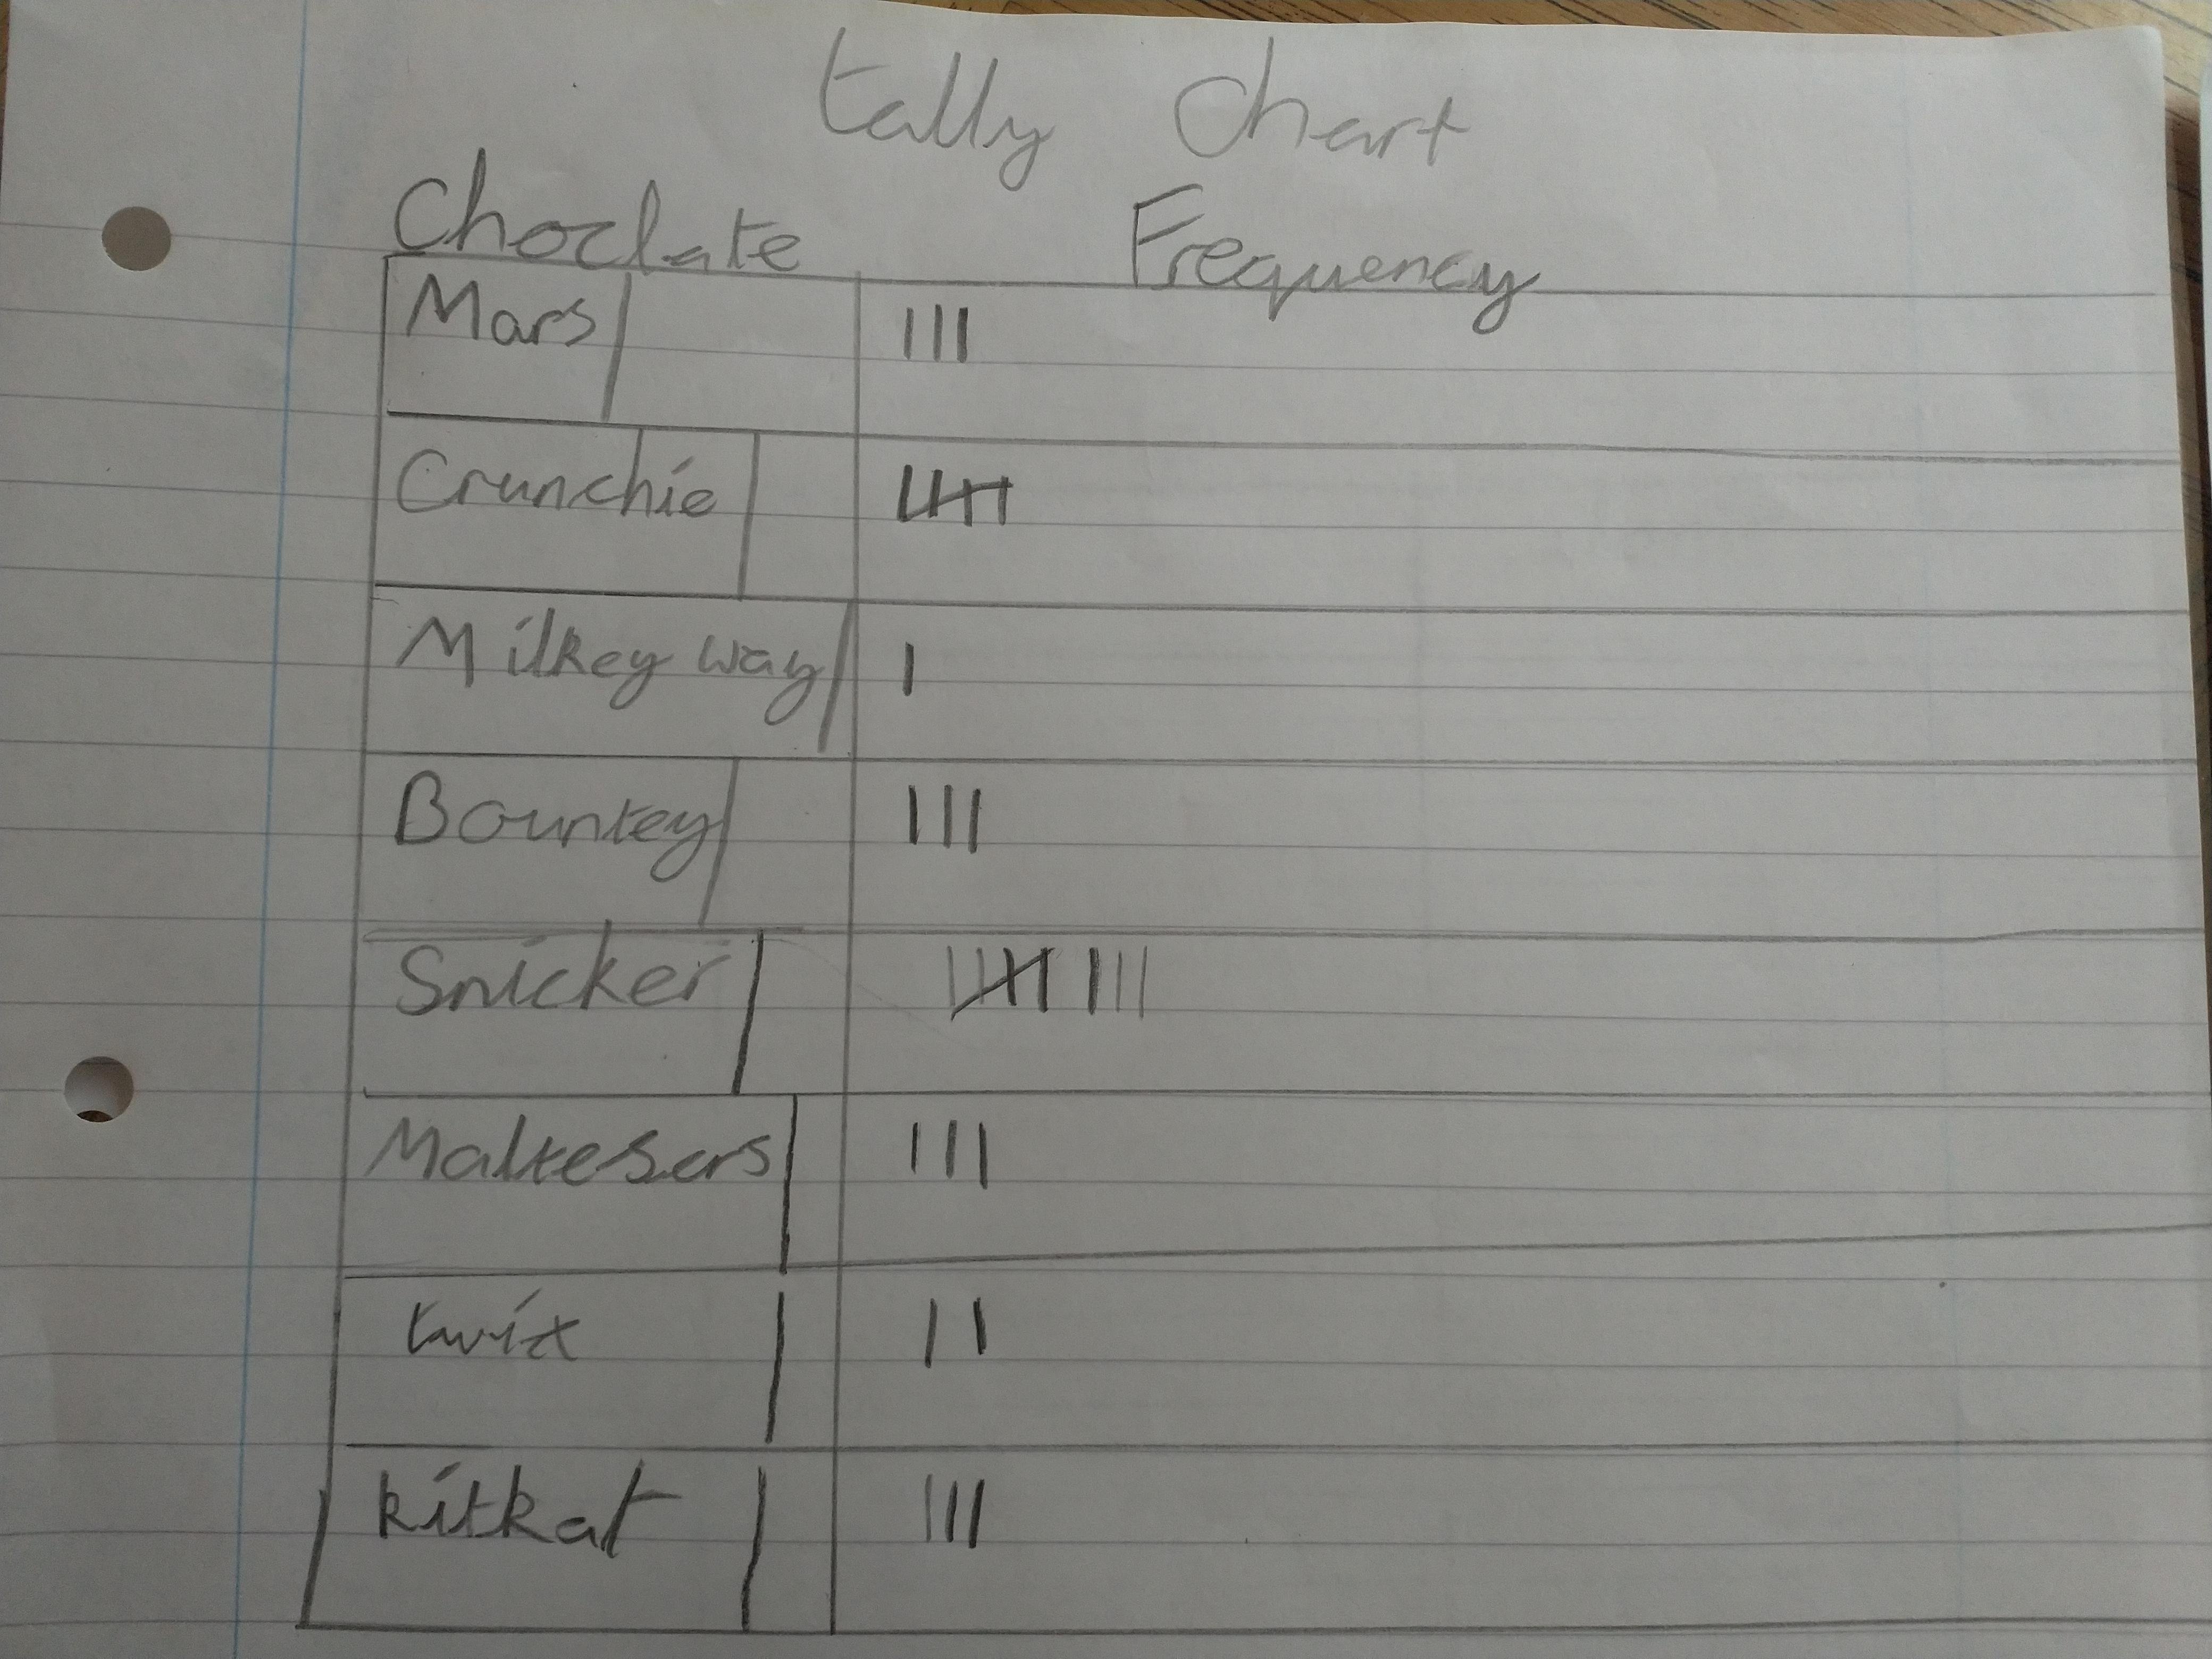 tally chart
Choclate Frequency
Mars III
Crunchie 𝍸
Milkey way I
Bountey III
Snicker 𝍸 III
Maltesers III
twix II
kitkat III